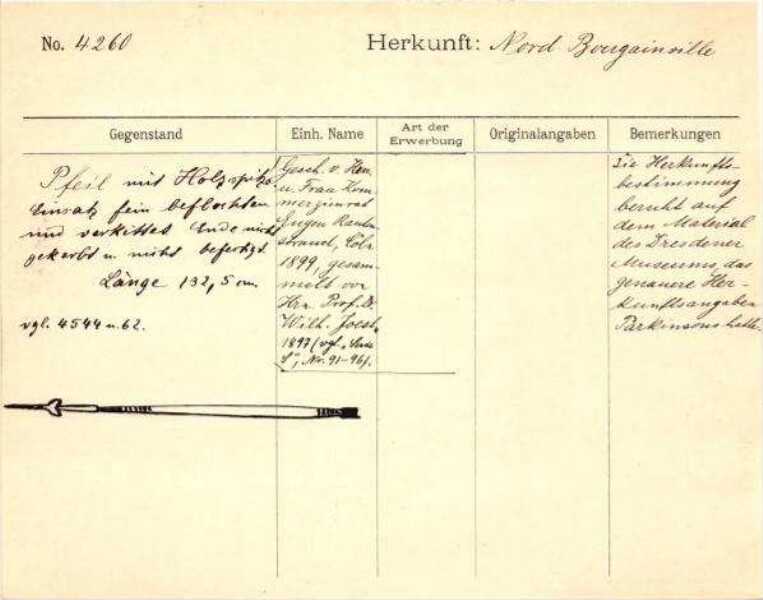 No. 4260
Herkunft: Nord Bougainville
Gegenstand
Einh. Name
Art der
Erwerbung
Originalangaben
Bemerkungen
Pfeil mit Holzspitze
Einsatz fein beflochten
und verkittet Ende nicht
gekerbt u. nicht befestigt.
Länge 132,5 cm.
vgl. 4544 u. 62.
Gesch. v. Herrn
u. Frau Kom-
merzienrat
Eugen Rauten-
strauch, Cöln
1899, gesam-
melt von
Hrn. Prof. Dr.
Wilh. Joest,
1897 (vgl.
S", Nr. 91-96).
Die Herkunfts-
bestimmung
beruht auf
dem Material
des Dresdener
Museums, das
genauere Her-
kunftsangaben
Parkinsons hatte.